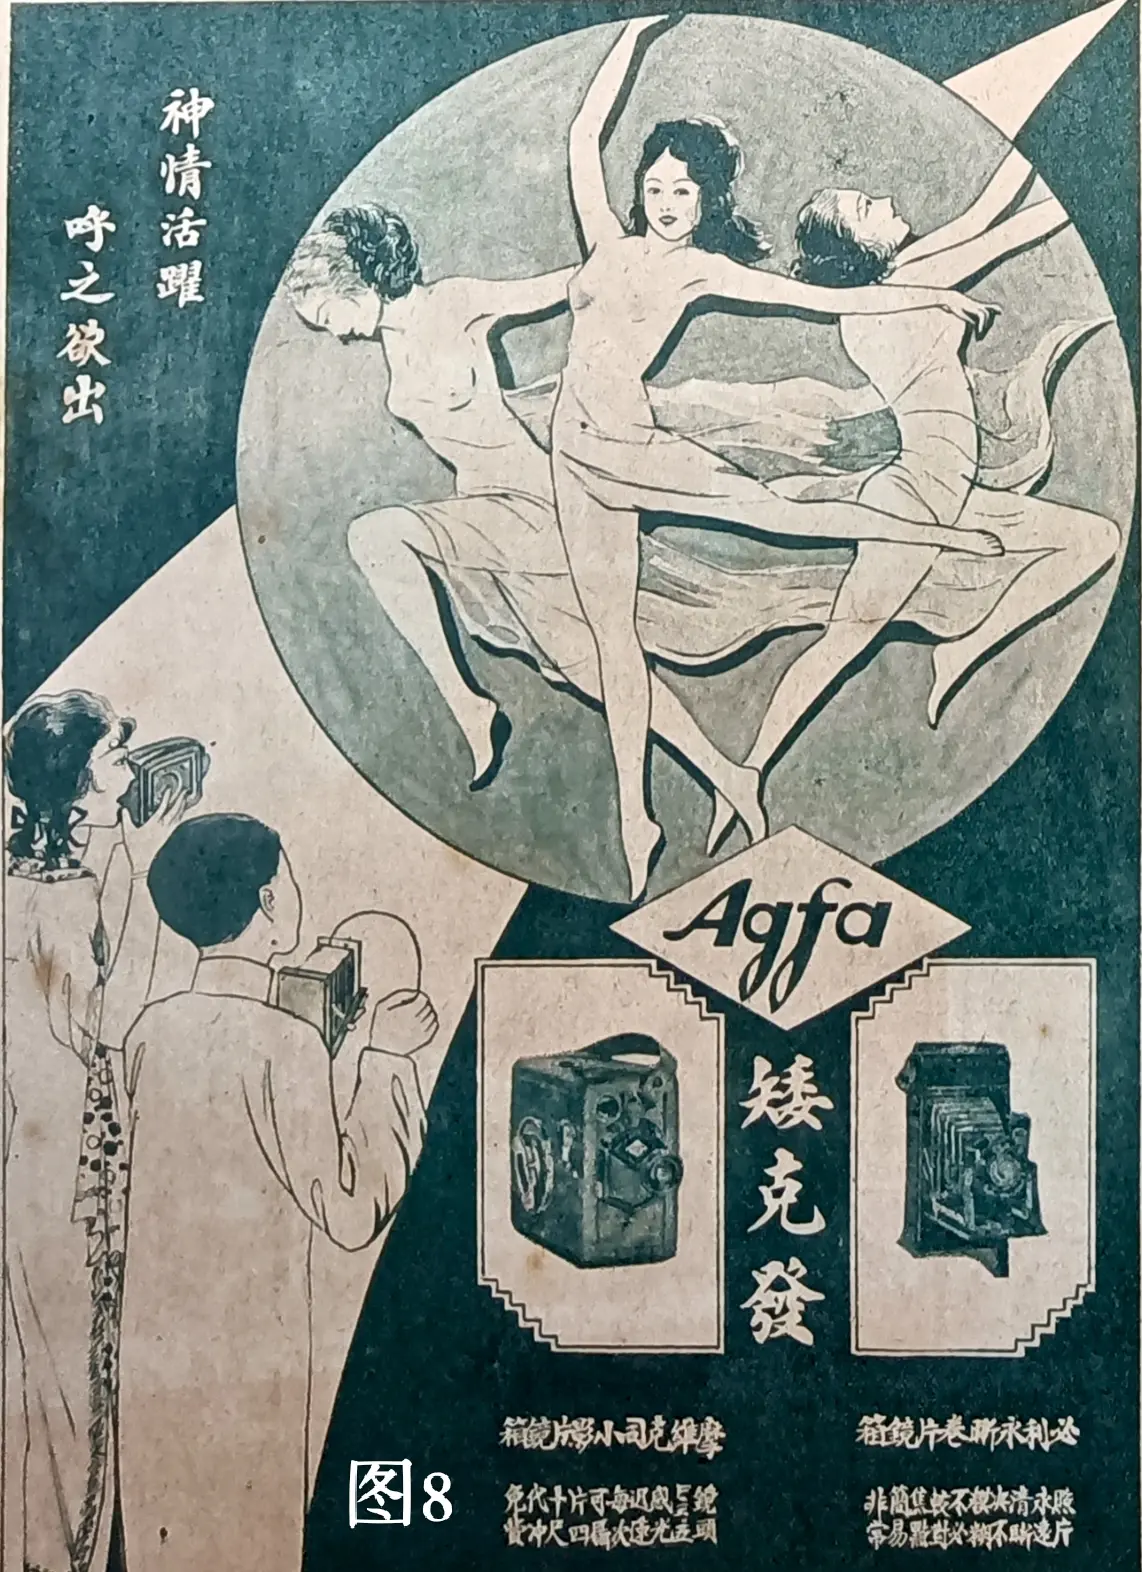 神情活躍
呼之欲出
Agfa
矮克發
必利永晰卷片鏡箱
照片永遠清晰決不模糊不必較對焦點簡易非常
摩維克司小影片鏡箱
鏡頭感光迅速每次可攝片四十尺代沖免費
图8